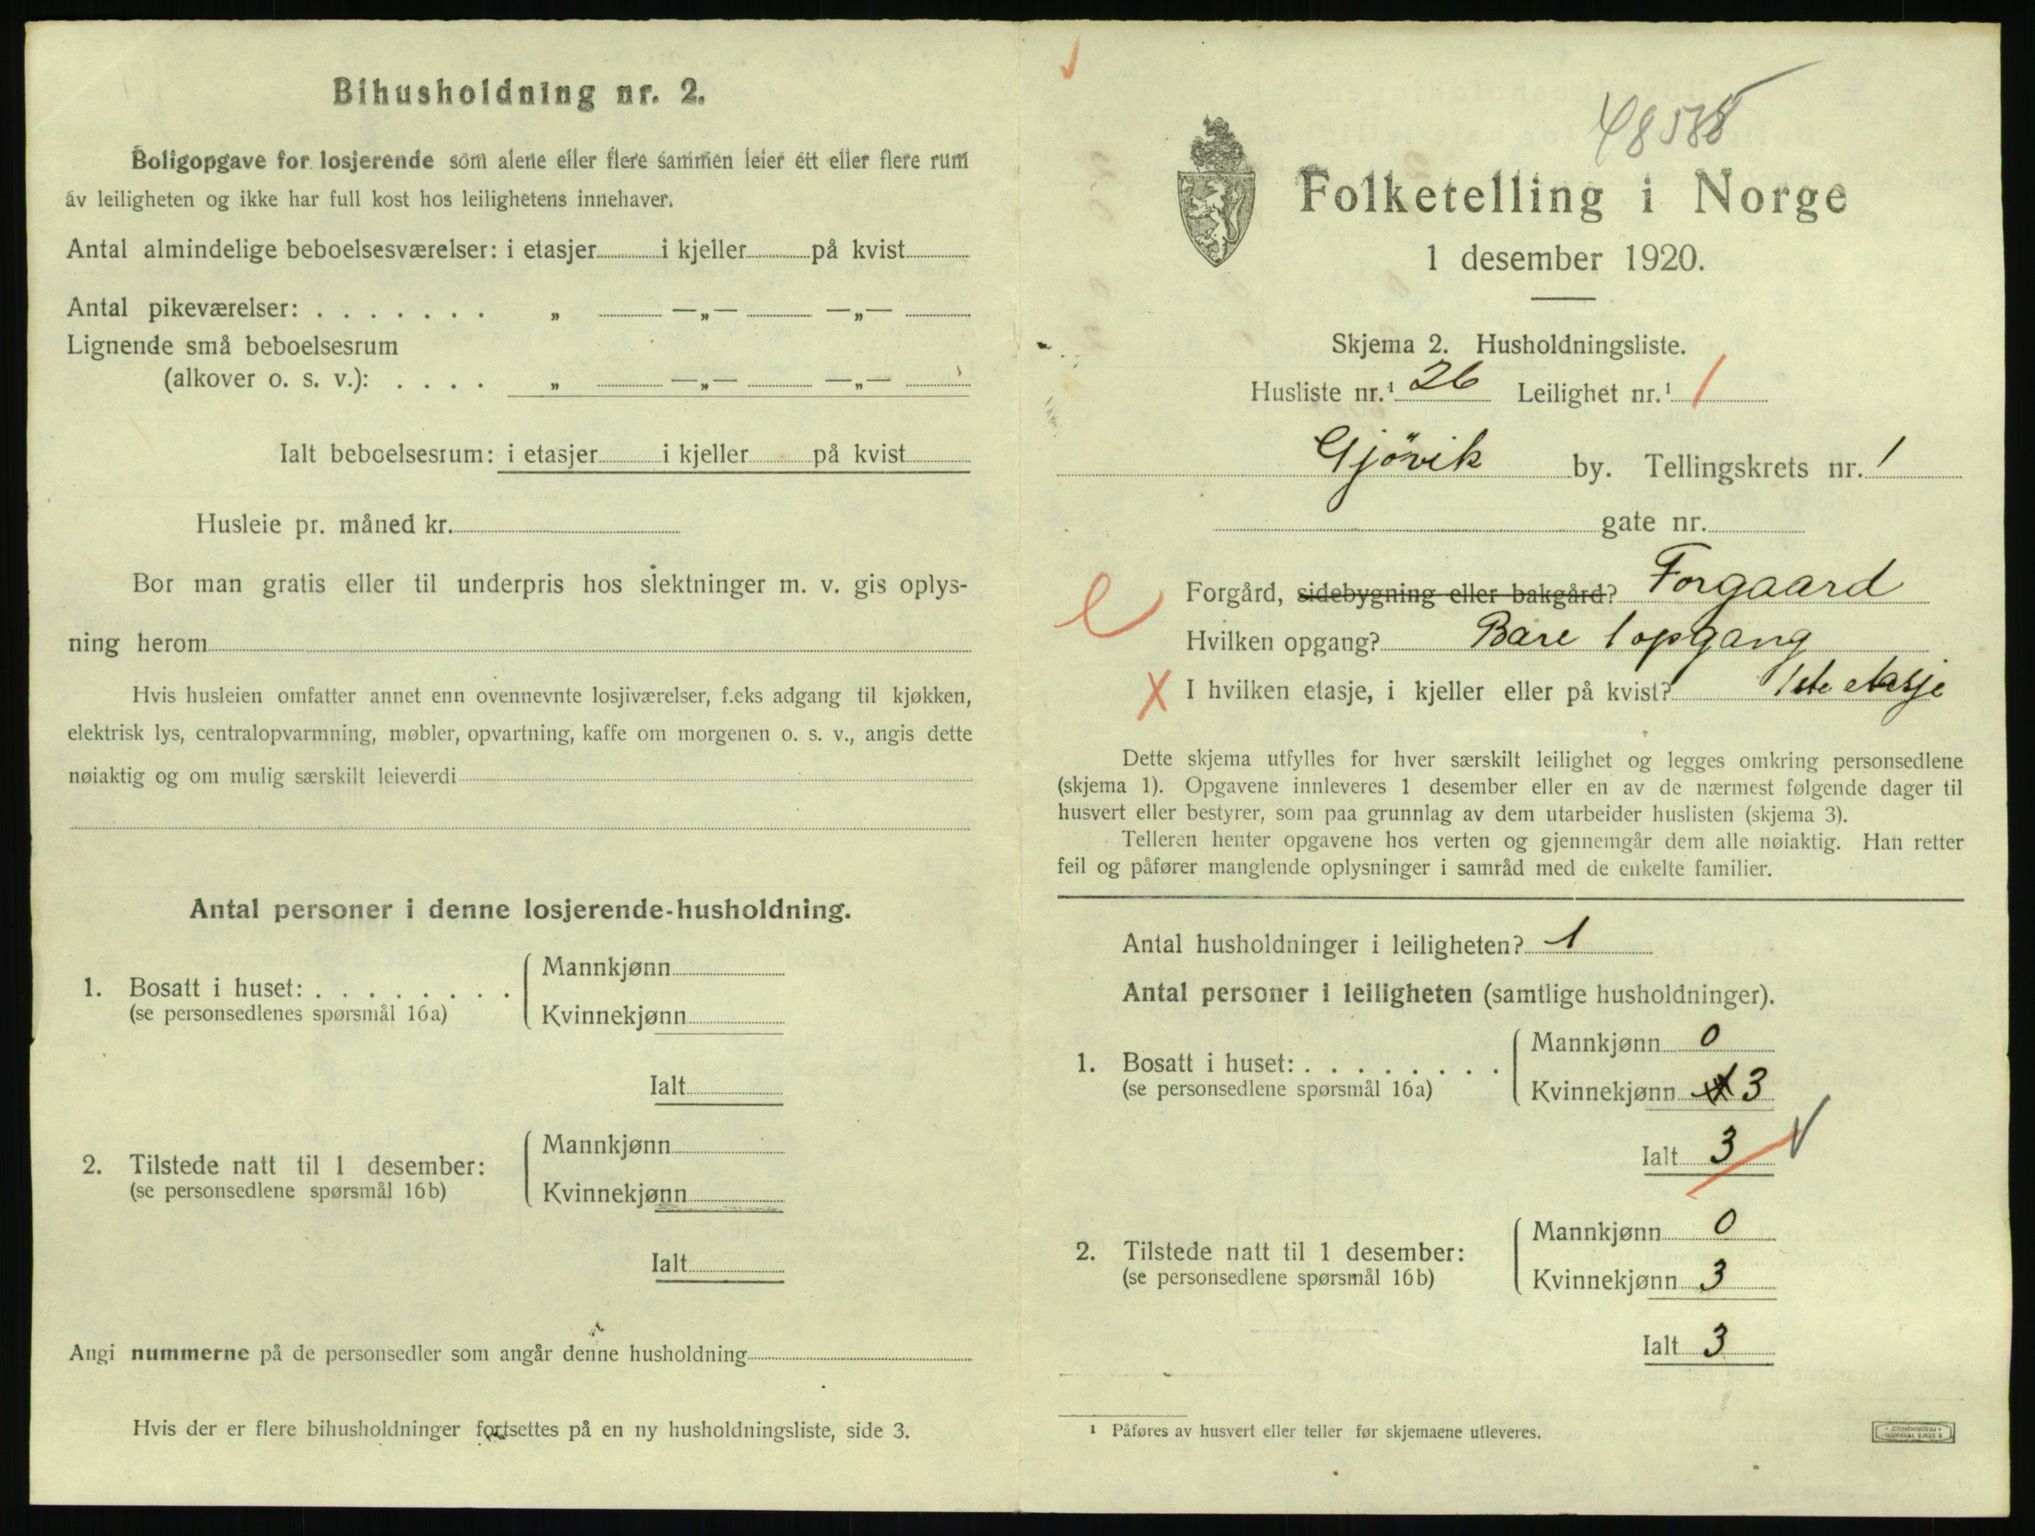 Bihusholdning nr. 2.
Boligopgave for losjerende som alene eller flere sammen leier ett eller flere rum
av leiligheten og ikke har full kost hos leilighetens innehaver.
Antal almindelige beboelsesværelser: i etasjer i kjeller på kvist
Antal pikeværelser: . . . . . . . „ —„— —„—
Lignende små beboelsesrum
(alkover o. s. v.): . . . . „ —„— —„—
Ialt beboelsesrum: i etasjer i kjeller på kvist
Husleie pr. måned kr.
Bor man gratis eller til underpris hos slektninger m. v. gis oplys-
ning herom
Hvis husleien omfatter annet enn ovennevnte losjiværelser, f.eks adgang til kjøkken,
elektrisk lys, centralopvarmning, møbler, opvartning, kaffe om morgenen o. s. v., angis dette
nøiaktig og om mulig særskilt leieverdi
Antal personer i denne losjerende-husholdning.
1. Bosatt i huset: . . . . . . . .
(se personsedlenes spørsmål 16a)
Mannkjønn
Kvinnekjønn
Ialt
2. Tilstede natt til 1 desember:
(se personsedlene spørsmål 16b)
Mannkjønn
Kvinnekjønn
Ialt
Angi nummerne på de personsedler som angår denne husholdning
Hvis der er flere bihusholdninger fortsettes på en ny husholdningsliste, side 3.
Folketelling i Norge
1 desember 1920.
Skjema 2. Husholdningsliste.
Husliste nr.¹ 26 Leilighet nr.¹ 1
Gjøvik by. Tellingskrets nr. 1
gate nr.
Forgård, sidebygning eller bakgård? Forgaard
Hvilken opgang? Bare 1 opgang
I hvilken etasje, i kjeller eller på kvist? 1ste etasje
Dette skjema utfylles for hver særskilt leilighet og legges omkring personsedlene
(skjema 1). Opgavene innleveres 1 desember eller en av de nærmest følgende dager til
husvert eller bestyrer, som paa grunnlag av dem utarbeider huslisten (skjema 3).
Telleren henter opgavene hos verten og gjennemgår dem alle nøiaktig. Han retter
feil og påfører manglende oplysninger i samråd med de enkelte familier.
Antal husholdninger i leiligheten? 1
Antal personer i leiligheten (samtlige husholdninger).
1. Bosatt i huset: . . . . . . . .
(se personsedlene spørsmål 16a)
Mannkjønn 0
Kvinnekjønn 3
Ialt 3
2. Tilstede natt til 1 desember:
(se personsedlene spørsmål 16b)
Mannkjønn 0
Kvinnekjønn 3
Ialt 3
¹ Påføres av husvert eller teller før skjemaene utleveres.